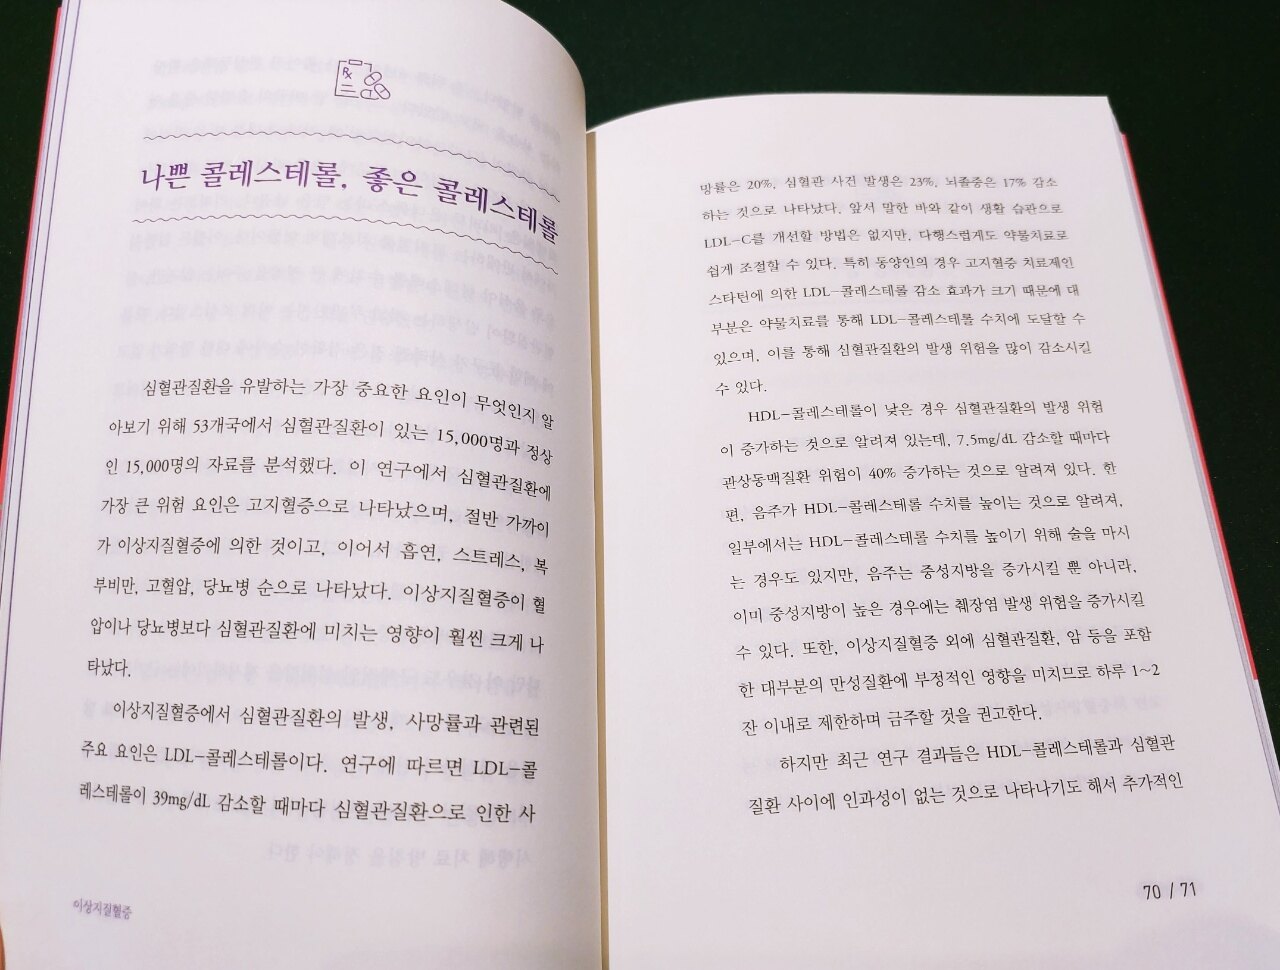 Rx
나쁜 콜레스테롤, 좋은 콜레스테롤
심혈관질환을 유발하는 가장 중요한 요인이 무엇인지 알
아보기 위해 53개국에서 심혈관질환이 있는 15,000명과 정상
인 15,000명의 자료를 분석했다. 이 연구에서 심혈관질환에
가장 큰 위험 요인은 고지혈증으로 나타났으며, 절반 가까이
가 이상지질혈증에 의한 것이고, 이어서 흡연, 스트레스, 복
부비만, 고혈압, 당뇨병 순으로 나타났다. 이상지질혈증이 혈
압이나 당뇨병보다 심혈관질환에 미치는 영향이 훨씬 크게 나
타났다.
이상지질혈증에서 심혈관질환의 발생, 사망률과 관련된
주요 요인은 LDL-콜레스테롤이다. 연구에 따르면 LDL-콜
레스테롤이 39mg/dL 감소할 때마다 심혈관질환으로 인한 사
이상지질혈증
망률은 20%, 심혈관 사건 발생은 23%, 뇌졸중은 17% 감소
하는 것으로 나타났다. 앞서 말한 바와 같이 생활 습관으로
LDL-C를 개선할 방법은 없지만, 다행스럽게도 약물치료로
쉽게 조절할 수 있다. 특히 동양인의 경우 고지혈증 치료제인
스타틴에 의한 LDL-콜레스테롤 감소 효과가 크기 때문에 대
부분은 약물치료를 통해 LDL-콜레스테롤 수치에 도달할 수
있으며, 이를 통해 심혈관질환의 발생 위험을 많이 감소시킬
수 있다.
HDL-콜레스테롤이 낮은 경우 심혈관질환의 발생 위험
이 증가하는 것으로 알려져 있는데, 7.5mg/dL 감소할 때마다
관상동맥질환 위험이 40% 증가하는 것으로 알려져 있다. 한
편, 음주가 HDL-콜레스테롤 수치를 높이는 것으로 알려져,
일부에서는 HDL-콜레스테롤 수치를 높이기 위해 술을 마시
는 경우도 있지만, 음주는 중성지방을 증가시킬 뿐 아니라,
이미 중성지방이 높은 경우에는 췌장염 발생 위험을 증가시킬
수 있다. 또한, 이상지질혈증 외에 심혈관질환, 암 등을 포함
한 대부분의 만성질환에 부정적인 영향을 미치므로 하루 1~2
잔 이내로 제한하며 금주할 것을 권고한다.
하지만 최근 연구 결과들은 HDL-콜레스테롤과 심혈관
질환 사이에 인과성이 없는 것으로 나타나기도 해서 추가적인
70 / 71